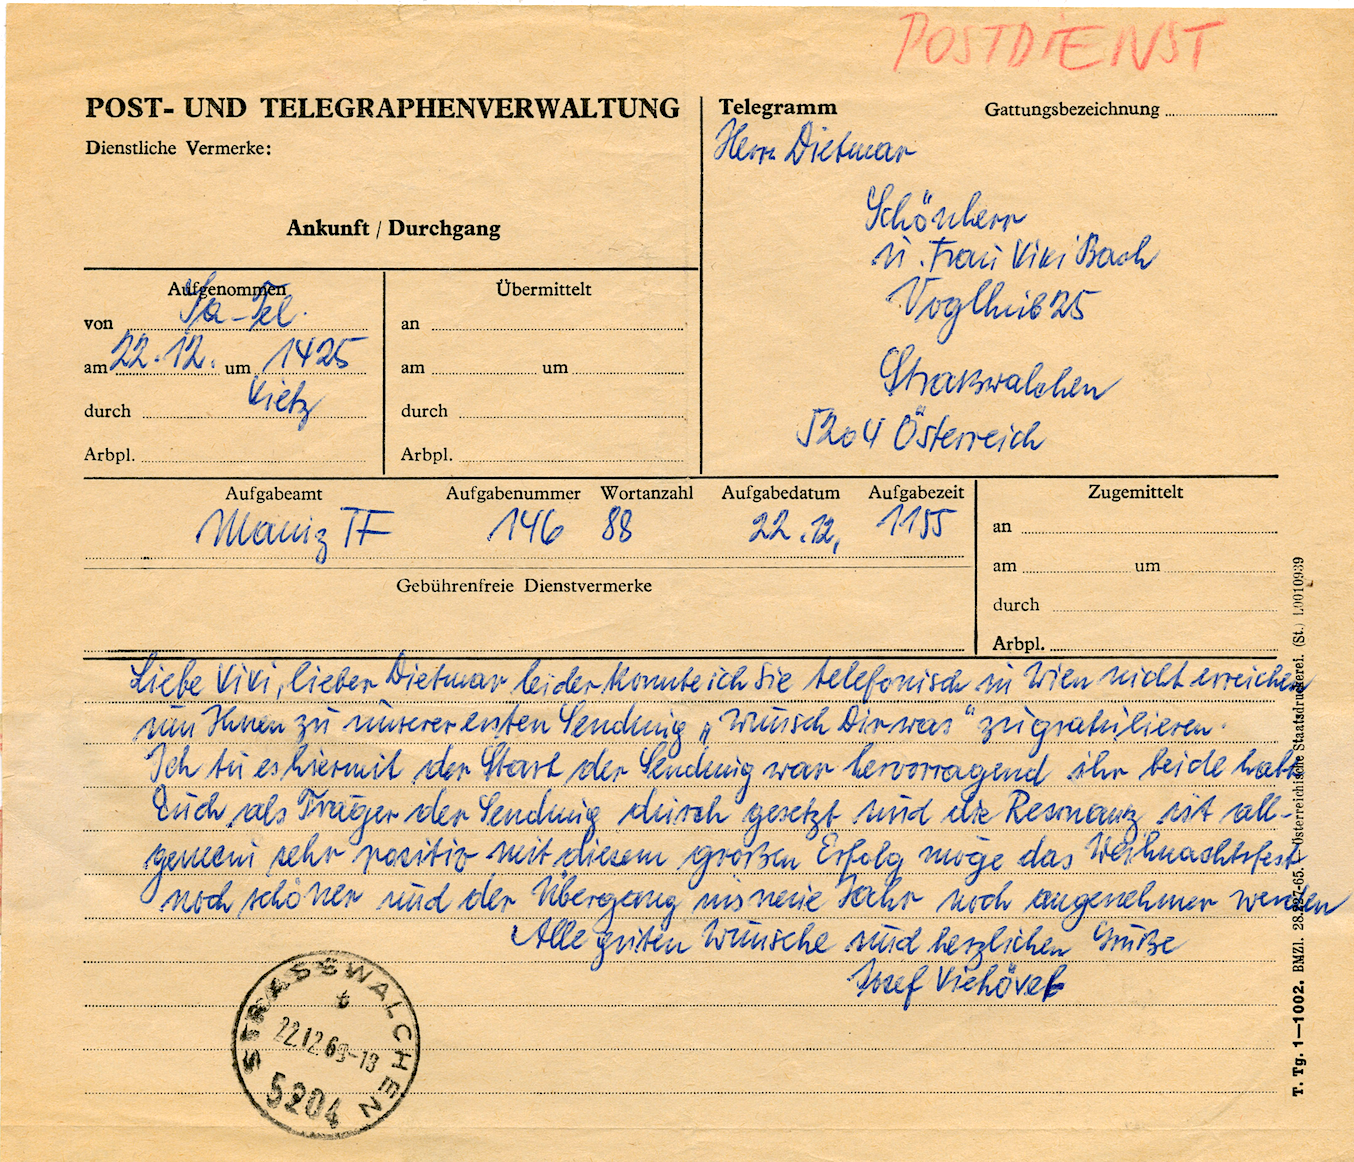 POSTDIENST
POST- UND TELEGRAPHENVERWALTUNG
Dienstliche Vermerke:
Ankunft / Durchgang
Telegramm
Gattungsbezeichnung
Herrn Dietmar
Schönherr
u. Frau Vivi Bach
Voglhub 25
Straßwalchen
5204 Österreich
Aufgenommen
von Sa-Tel.
am 22.12. um 1425
durch Vietz
Arbpl.
Übermittelt
an
am um
durch
Arbpl.
Aufgabeamt Aufgabenummer Wortanzahl Aufgabedatum Aufgabezeit
Mainz TF 146 88 22.12. 1155
Gebührenfreie Dienstvermerke
Zugemittelt
an
am um
durch
Arbpl.
Liebe Vivi, lieber Dietmar leider konnte ich Sie telefonisch in Wien nicht erreichen
um Ihnen zu unserer ersten Sendung „Wünsch Dir was“ zu gratulieren.
Ich tu es hiermit der Start der Sendung war hervorragend ihr beide habt
Euch als Träger der Sendung durch gesetzt und die Resonanz ist all-
gemein sehr positiv mit diesem großen Erfolg möge das Weihnachtsfest
noch schöner und der Übergang ins neue Jahr noch angenehmer werden
Alle guten Wünsche und herzlichen Grüße
Josef Viehöver
STRASSWALCHEN
b
22.12.69-18
5204
T. Tg. 1—1002. BMZl. 28.227-65. Österreichische Staatsdruckerei. (St.) L0010939